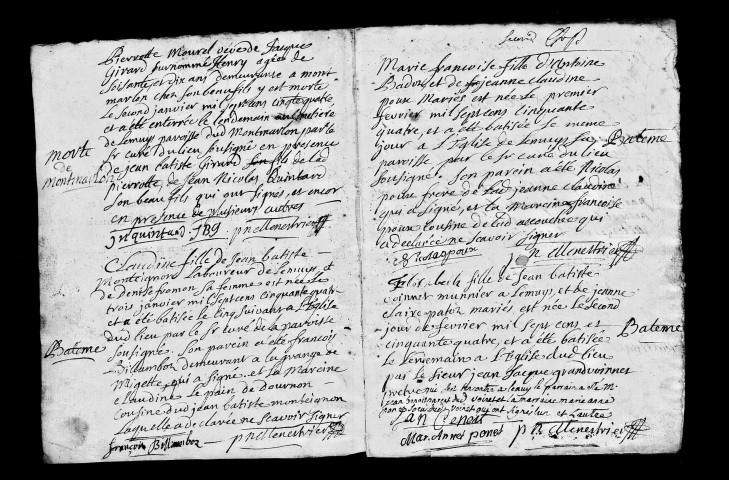 Pierrotte Mourel veve de Jacque
Girard surnommé henry agées de
soisante et dix ans demeurante a mont
marlon chez son beau fils y est morte
le second janvier mil sept cens cinqte quatre
et a été enterrée le lendemain au cimetiere
de Lemuys paroisse dud Montmarlon par le
sr curé du lieu sousigné en presence
Morte
de
Montmarlon
de jean batiste Girard son fils de lad
pierrotte, de Jean Nicolas Quintard
son beau fils qui ont signés et encor
en presence de plusieurs autres
jnquintard JBG pnMenestrier
Claudine fille de Jean batiste
Monteignon Laboureur de Lemuys, et
de denise fromon sa femme est née le
trois janvier mil sept cens cinquante quatre
et a été batisée le cinq suivant a l'Eglise
dud lieu par le sr curé de la paroisse
Bateme
sousigné. son parein a été françois
Billambor demeurant a la grange de
Migette, qui a signé. et la Mareine
Claudine le pain de dournon
cousine dud jean batiste monteignon
laquelle a declarée ne scavoir signer
françois Billambor pnMenestrier
second
Marie françoise fille d'Antoine
Badoz et de jeanne claudine
poux Mariés est née le premier
fevrier mil sept cens cinquante
quatre, et a été batisée le meme
jour a l'Eglise de Lemuys sa
Bateme
paroisse pour le sr curé du lieu
sousigné. son parein a été Nicolas
poux frere de lad jeanne claudine
qui a signé, et la Mareine françoise
poux cousine de lad accouchée qui
a declarée ne scavoir signer
pn Menestrier
fille de Jean batiste
munnier a Lemuys et de jeanne
claire patoz mariés est née le second
jour de fevrier mil sept cens et
cinquante quatre, et a été batisée
Bateme
le lendemain a l'Eglise dud lieu
par le Sieur jean Jacque grandvoinnet
pretre qui
Jan
pn Menestrier